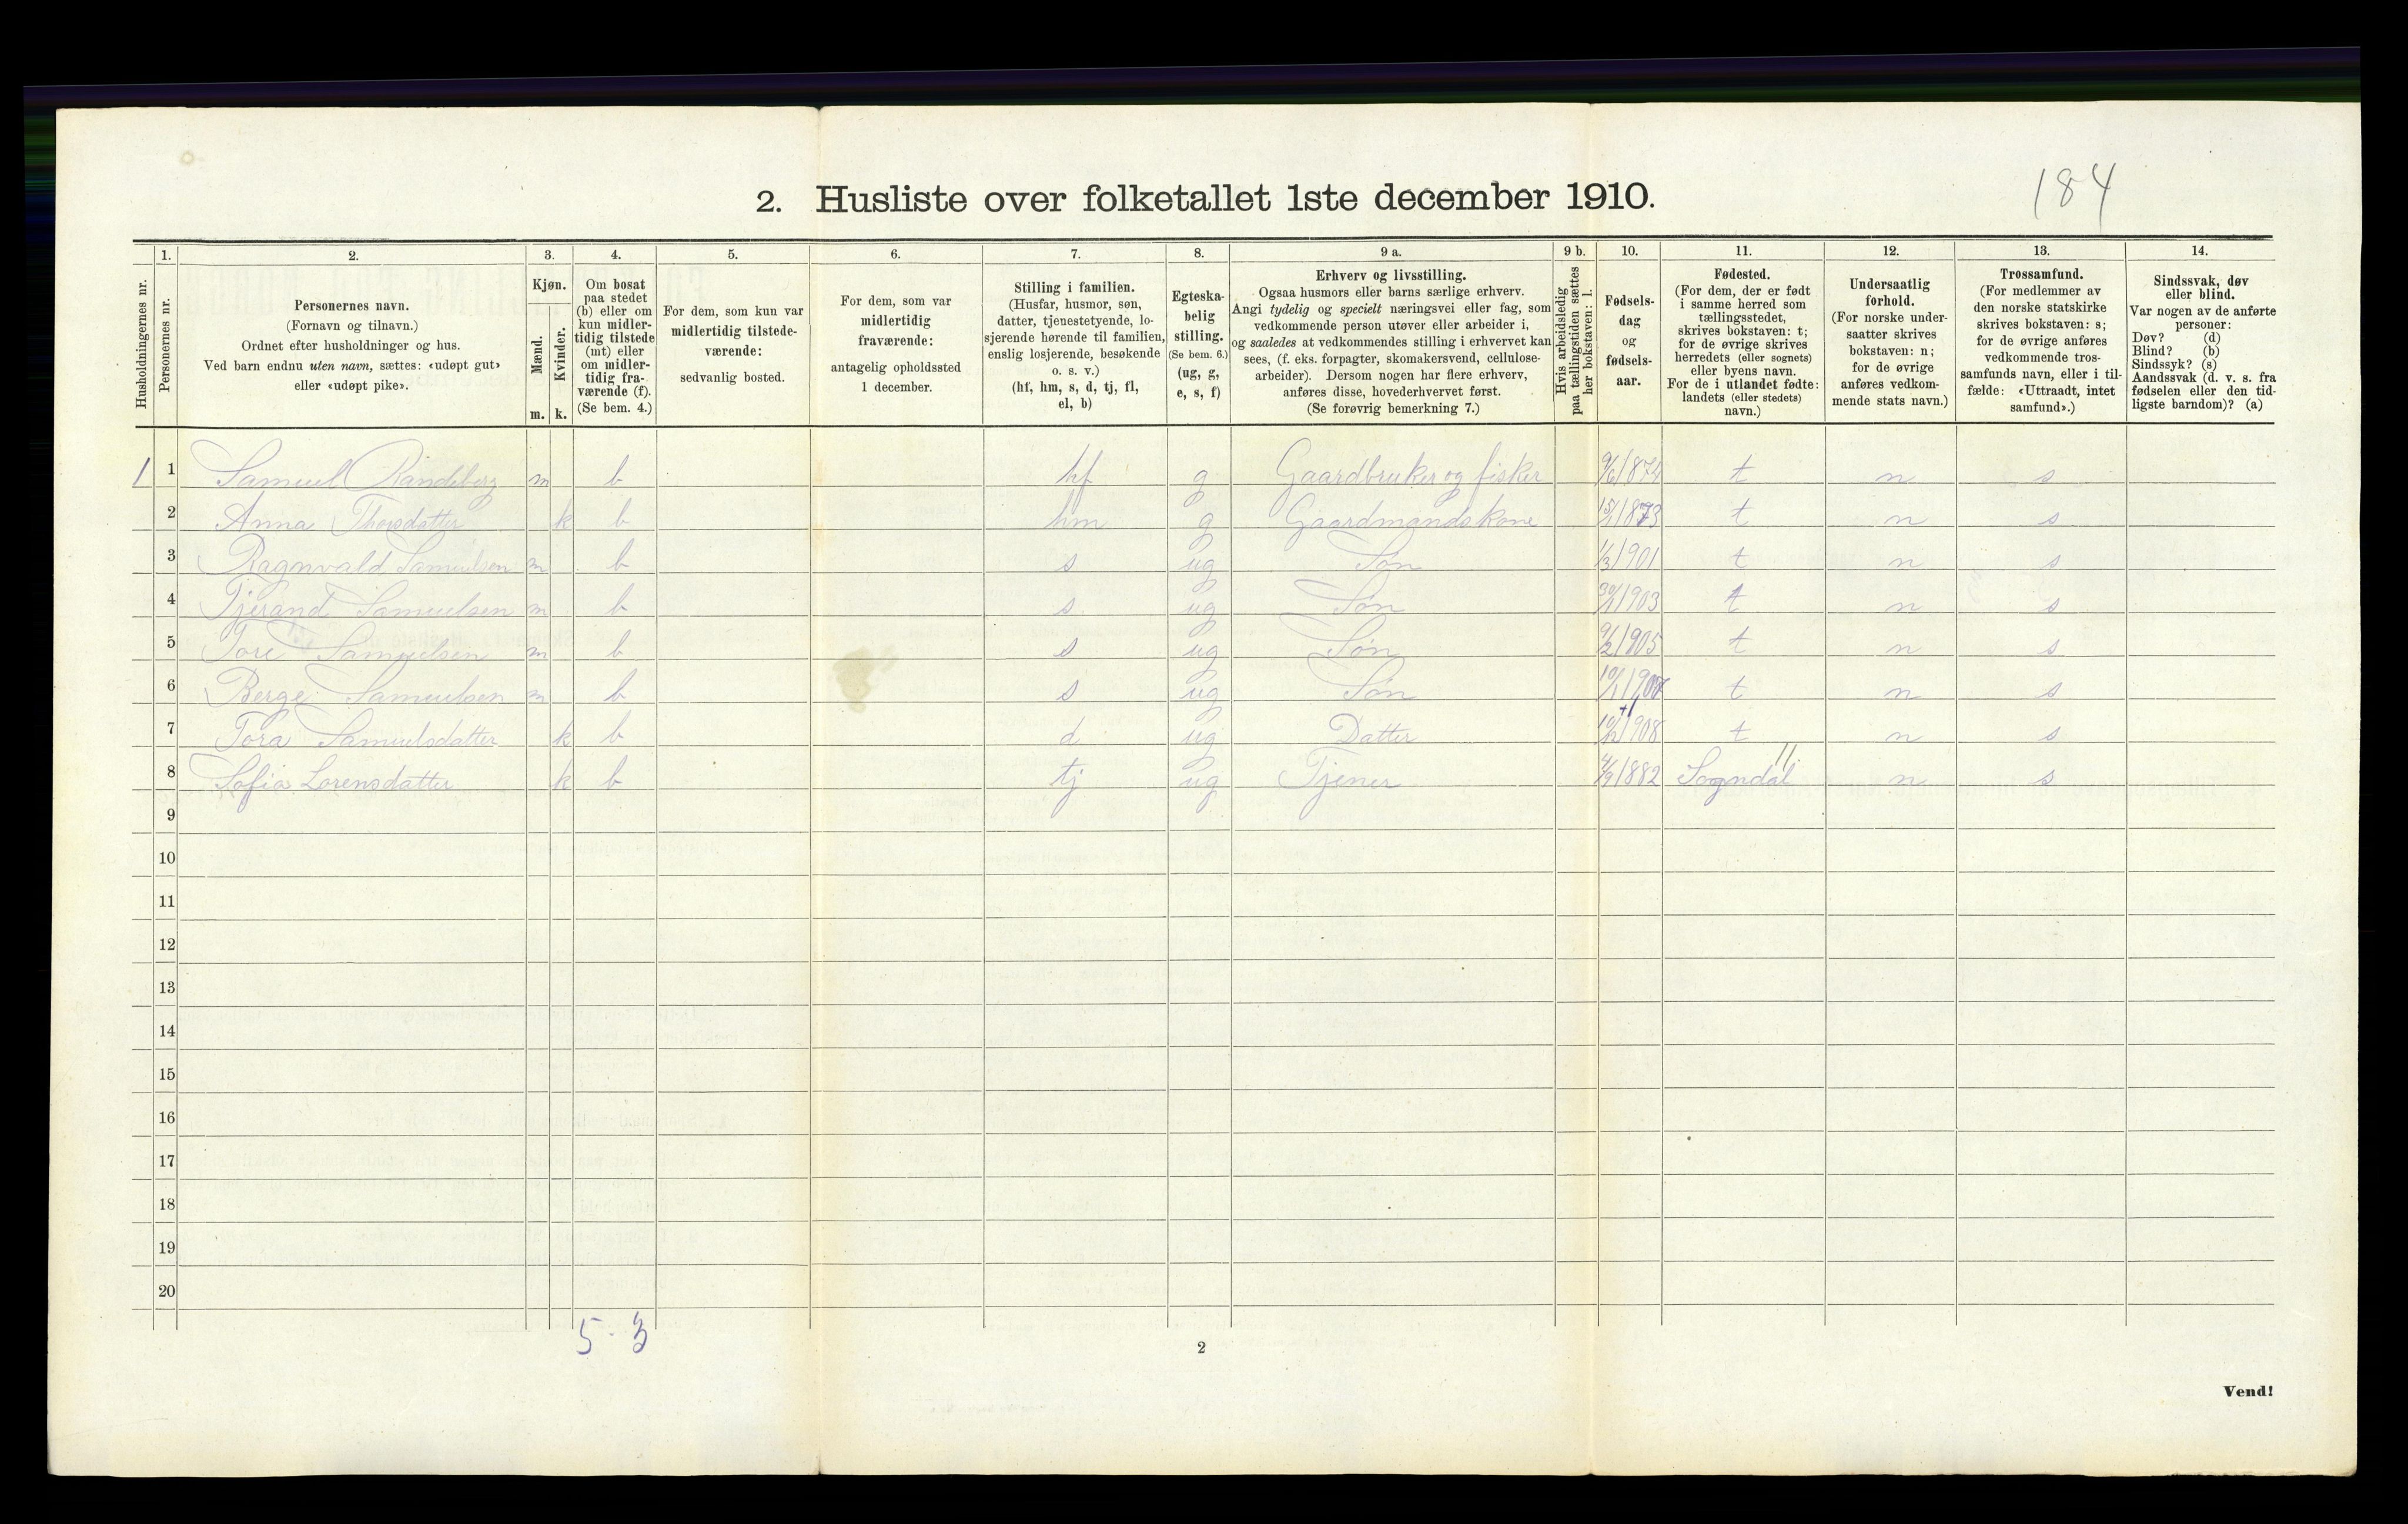 184
2. Husliste over folketallet 1ste december 1910.
Husholdningernes nr.
1.
Personernes nr.
2.
Personernes navn.
(Fornavn og tilnavn.)
Ordnet efter husholdninger og hus.
Ved barn endnu uten navn, sættes: «udøpt gut»
eller «udøpt pike».
3.
Kjøn.
Mænd.
Kvinder.
m. k.
4.
Om bosat
paa stedet
(b) eller om
kun midler-
tidig tilstede
(mt) eller
om midler-
tidig fra-
værende (f).
(Se bem. 4.)
5.
For dem, som kun var
midlertidig tilstede-
værende:
sedvanlig bosted.
6.
For dem, som var
midlertidig
fraværende:
antagelig opholdssted
1 december.
7.
Stilling i familien.
(Husfar, husmor, søn,
datter, tjenestetyende, lo-
sjerende hørende til familien,
enslig losjerende, besøkende
o. s. v.)
(hf, hm, s, d, tj, fl,
el, b)
8.
Egteska-
belig
stilling.
(Se bem. 6.)
(ug, g,
e, s, f)
9 a.
Erhverv og livsstilling.
Ogsaa husmors eller barns særlige erhverv.
Angi tydelig og specielt næringsvei eller fag, som
vedkommende person utøver eller arbeider i,
og saaledes at vedkommendes stilling i erhvervet kan
sees, (f. eks. forpagter, skomakersvend, cellulose-
arbeider). Dersom nogen har flere erhverv,
anføres disse, hovederhvervet først.
(Se forøvrig bemerkning 7.)
9 b.
Hvis arbeidsledig
paa tællingstiden sættes
her bokstaven: l.
10.
Fødsels-
dag
og
fødsels-
aar.
11.
Fødested.
(For dem, der er født
i samme herred som
tællingsstedet,
skrives bokstaven: t;
for de øvrige skrives
herredets (eller sognets)
eller byens navn.
For de i utlandet fødte:
landets (eller stedets)
navn.)
12.
Undersaatlig
forhold.
(For norske under-
saatter skrives
bokstaven: n;
for de øvrige
anføres vedkom-
mende stats navn.)
13.
Trossamfund.
(For medlemmer av
den norske statskirke
skrives bokstaven: s;
for de øvrige anføres
vedkommende tros-
samfunds navn, eller i til-
fælde: «Uttraadt, intet
samfund».)
14.
Sindssvak, døv
eller blind.
Var nogen av de anførte
personer:
Døv? (d)
Blind? (b)
Sindssyk? (s)
Aandssvak (d. v. s. fra
fødselen eller den tid-
ligste barndom)? (a)
1 1 Samuel Randeberg m b hf g Gaardbruker og fisker 9/6 1874 t n s
2 Anna Thorsdatter k b hm g Gaardmandskone 1873 t n s
3 Ragnvald Samuelsen m b s ug Søn 1/3 1901 t n s
4 Tjerand Samuelsen m b s ug Søn 1903 t n s
5 Tore Samuelsen m b s ug Søn 9/2 1905 t n s
6 Berge Samuelsen m b s ug Søn t n s
7 Tora Samuelsdatter k b d ug Datter 1908 t n s
8 Sofia Lorensdatter k b tj ug Tjener 4/9 1882 Sogndal 11 n s
9
10
11
12
13
14
15
16
17
18
19
20
5 · 3
2
Vend!